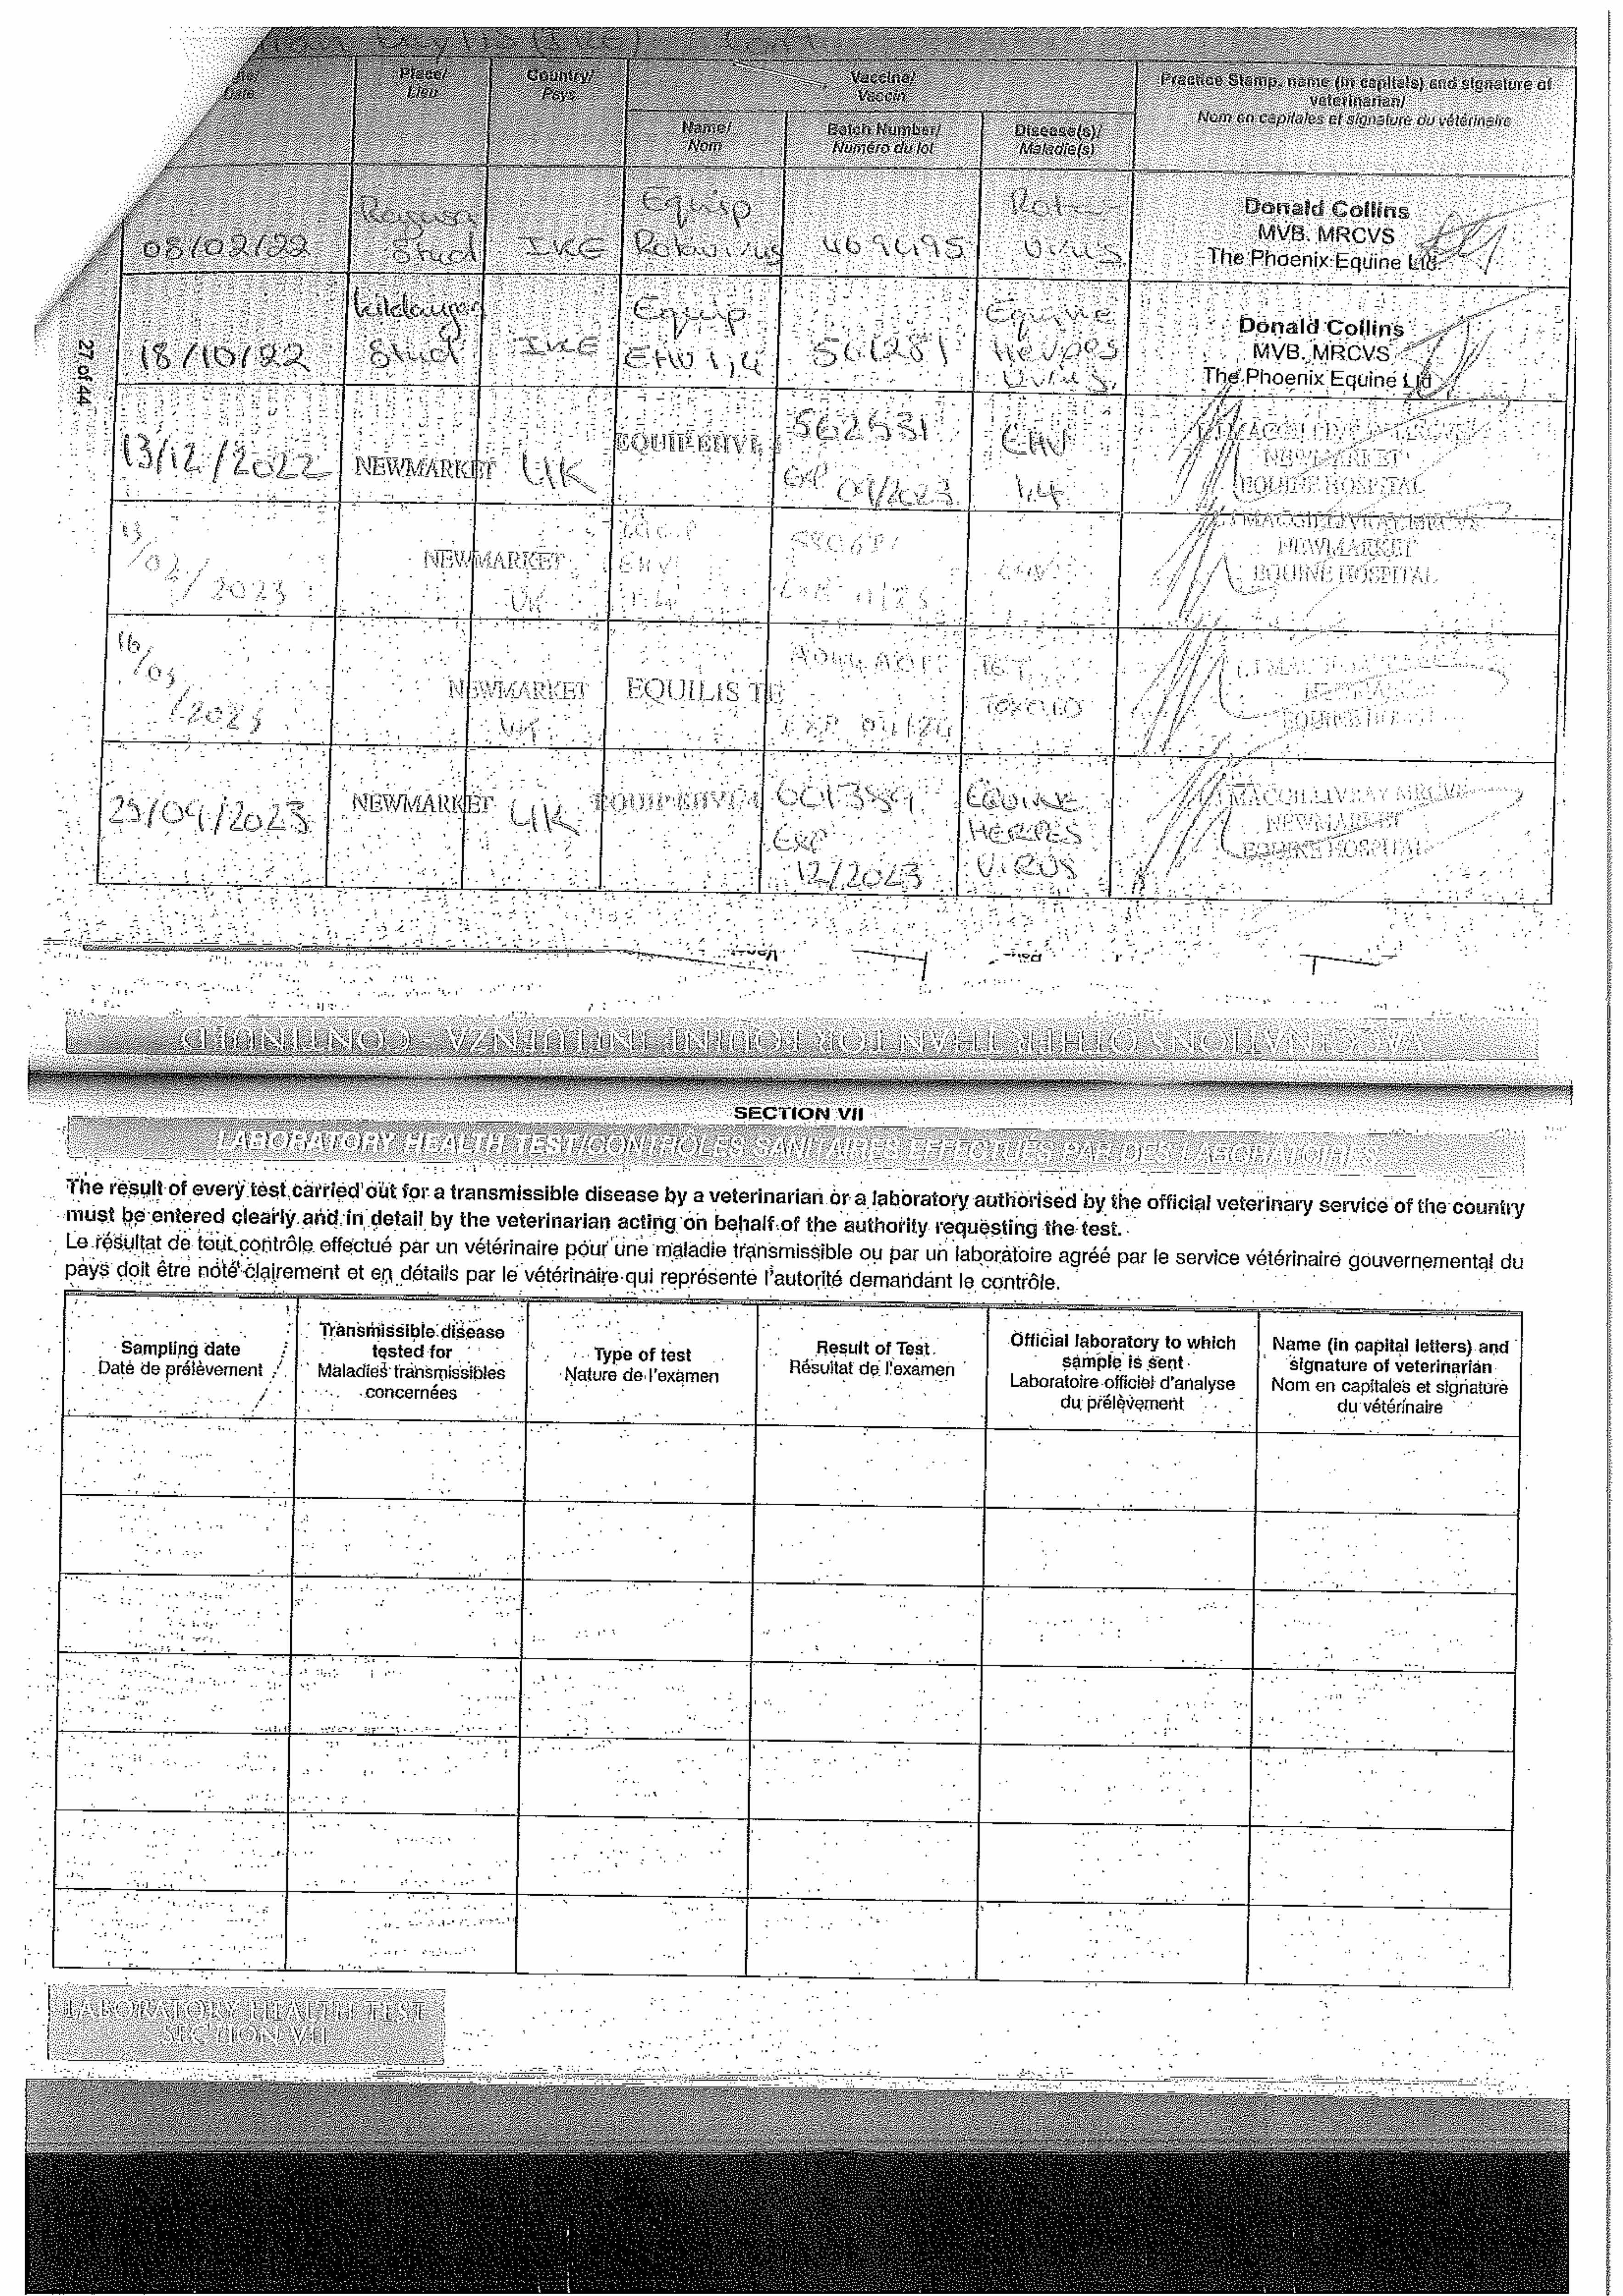 (IRE)
Date
Place/
Lieu
Country/
Pays
Vaccine/
Vaccin
Name/
Nom
Batch Number/
Numéro du lot
Disease(s)/
Maladie(s)
Practice Stamp, name (in capitals) and signature of
veterinarian/
Nom en capitales et signature du vétérinaire
08/02/22
Stud
IRE
Equip
Rotavirus
469495
Rota
virus
Donald Collins
MVB. MRCVS
The Phoenix Equine Ltd.
27 of 44
18/10/22
Kildangan
Stud
IRE
Equip
EHV 1,4
561281
Equine
Herpes
Virus.
Donald Collins
MVB. MRCVS
The Phoenix Equine Ltd
13/12/2022
NEWMARKET
UK
EQUIP EHV 1,
562531
EXP
09/2023
EHV
1,4
MACGILLIVRAY MRCVS
NEWMARKET
EQUINE HOSPITAL
13/02/2023
NEWMARKET
UK
EHV
EXP 11/23
EHV
MACGILLIVRAY MRCVS
NEWMARKET
EQUINE HOSPITAL
16/03/2023
NEWMARKET
UK
EQUILIS TE
EXP
NEWMARKET
EQUINE HOSPITAL
25/09/2023
NEWMARKET
UK
EQUIP EHV 1,4
601389
EXP
12/2023
EQUINE
HERPES
VIRUS
MACGILLIVRAY MRCVS
NEWMARKET
EQUINE HOSPITAL
VACCINATIONS OTHER THAN FOR EQUINE INFLUENZA - CONTINUED
SECTION VII
LABORATORY HEALTH TEST/CONTRÔLES SANITAIRES EFFECTUÉS PAR DES LABORATOIRES
The result of every test carried out for a transmissible disease by a veterinarian or a laboratory authorised by the official veterinary service of the country
must be entered clearly and in detail by the veterinarian acting on behalf of the authority requesting the test.
Le résultat de tout contrôle effectué par un vétérinaire pour une maladie transmissible ou par un laboratoire agréé par le service vétérinaire gouvernemental du
pays doit être noté clairement et en détails par le vétérinaire qui représente l'autorité demandant le contrôle.
Sampling date
Date de prélèvement
Transmissible disease
tested for
Maladies transmissibles
concernées
Type of test
Nature de l'examen
Result of Test
Résultat de l'examen
Official laboratory to which
sample is sent
Laboratoire officiel d'analyse
du prélèvement
Name (in capital letters) and
signature of veterinarian
Nom en capitales et signature
du vétérinaire
LABORATORY HEALTH TEST
SECTION VII